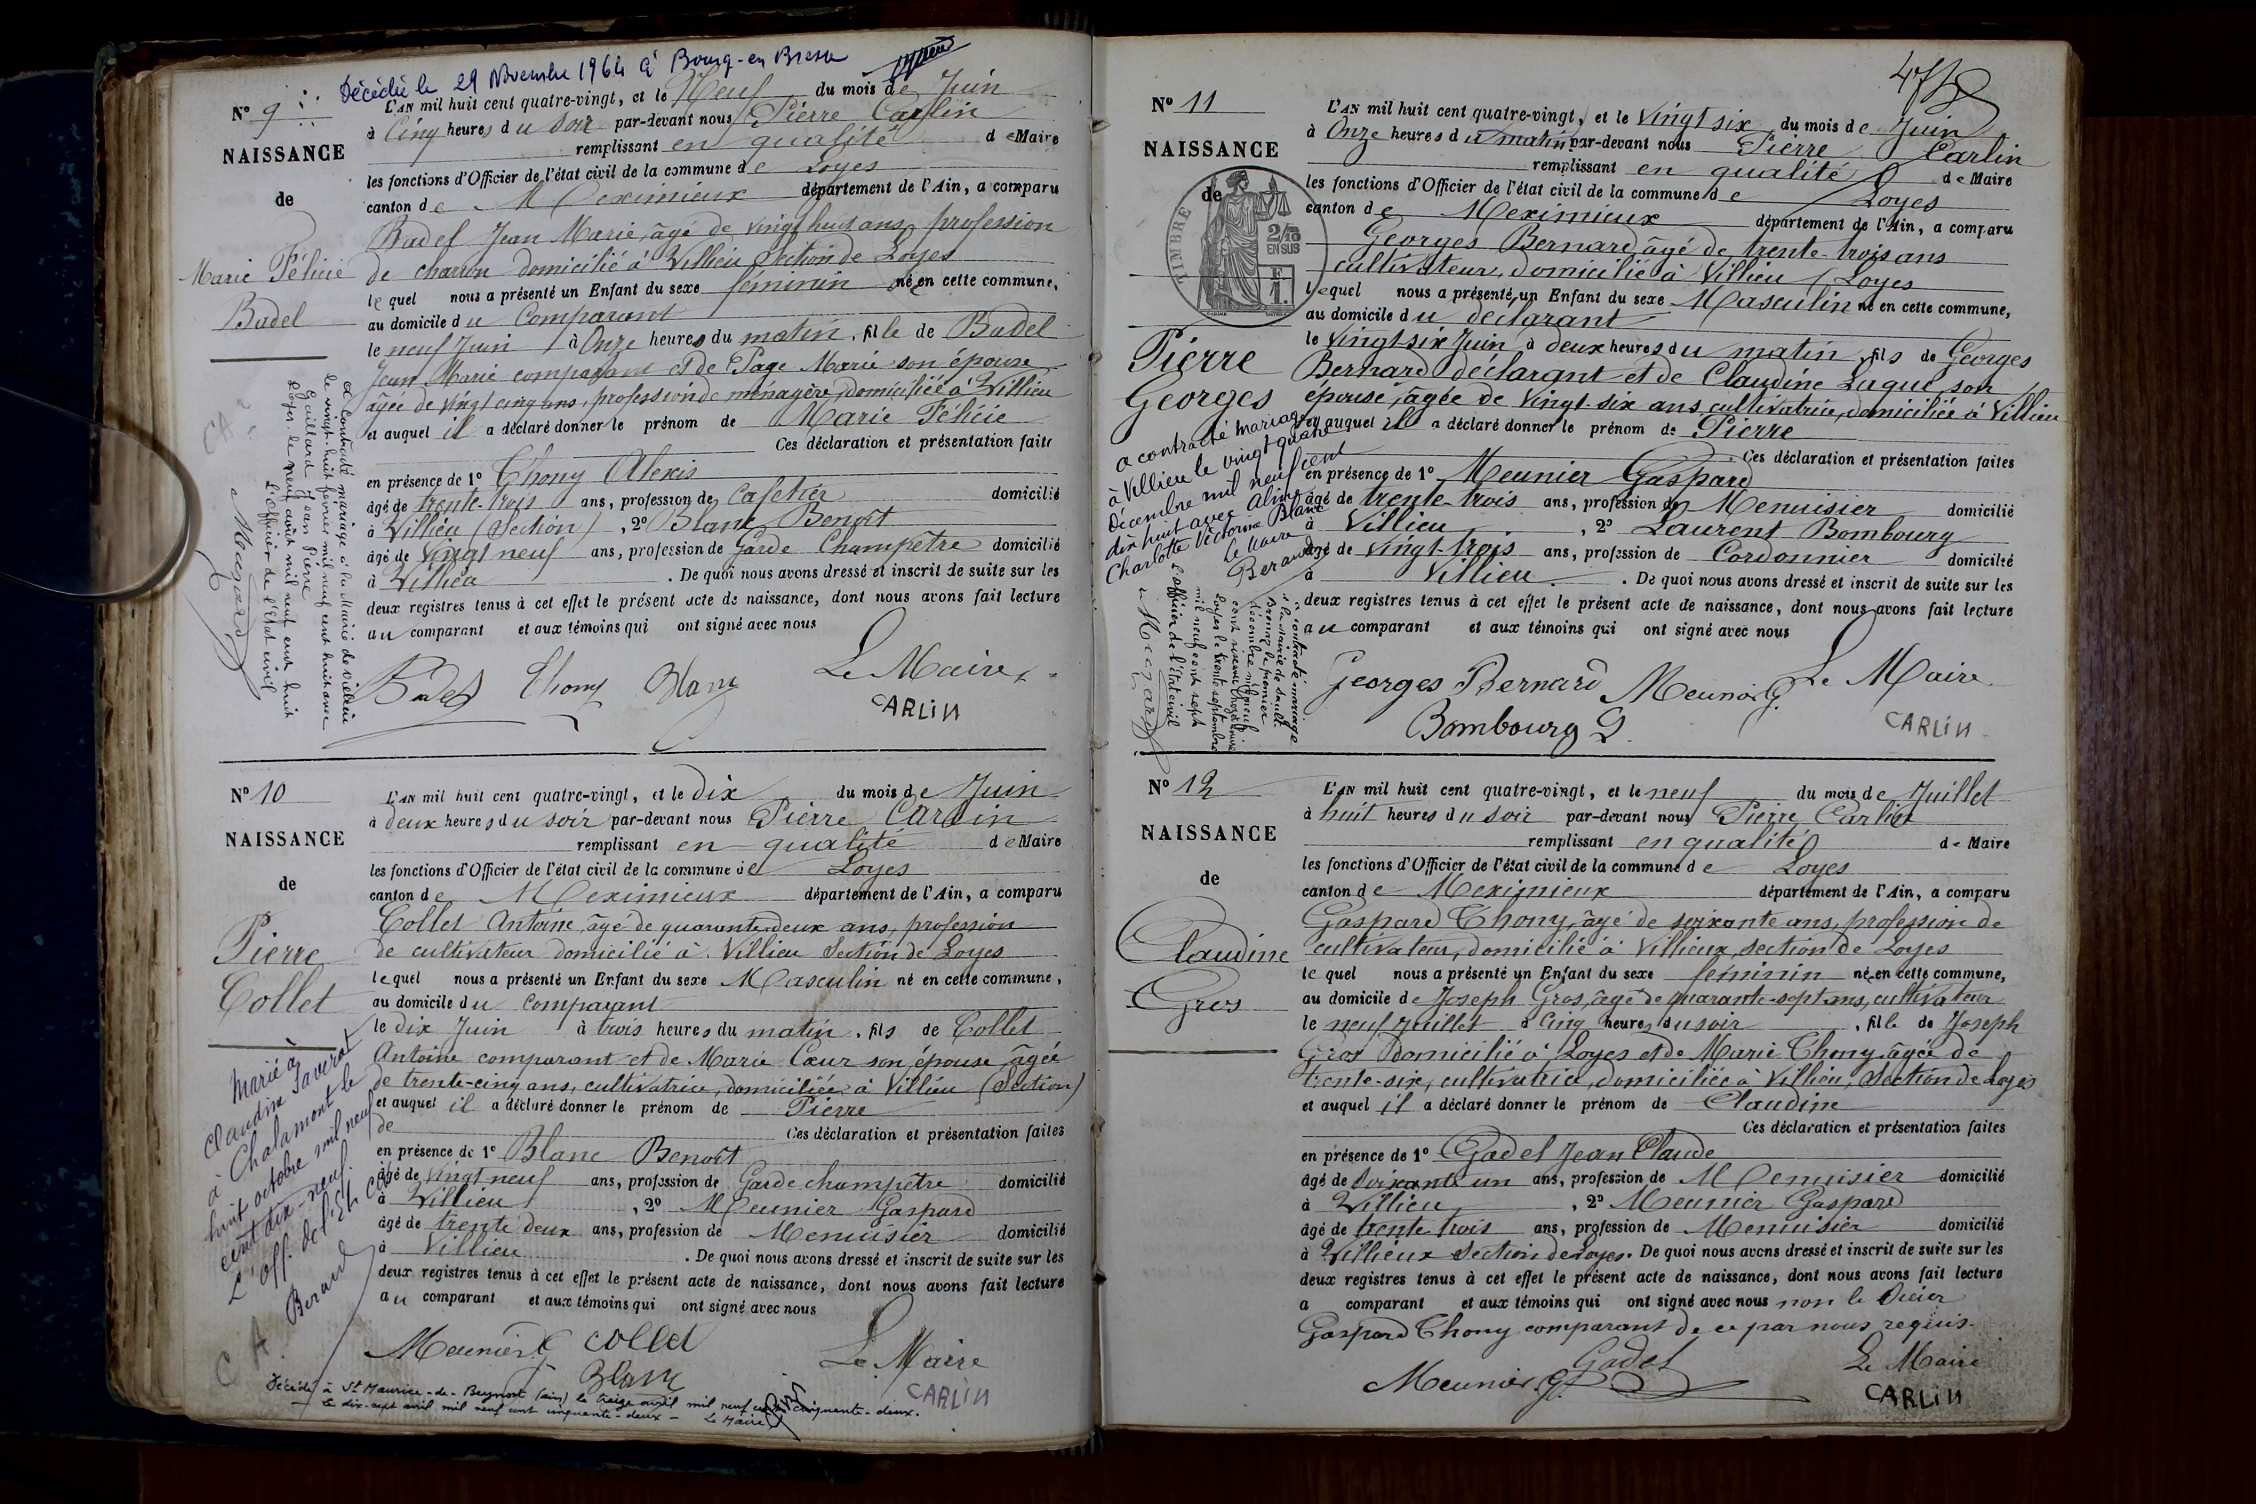 Décédée le 29 Novembre 1964 à Bourg-en-Bresse
N° 9
NAISSANCE
de
Marie Félicie
Badel
L'AN mil huit cent quatre-vingt, et le Neuf du mois de Juin
à Cinq heures du Soir par-devant nous Pierre Carlin
remplissant en qualité de Maire
les fonctions d'Officier de l'état civil de la commune de Loyes
canton de Meximieux département de l'Ain, a comparu
Badel Jean Marie, âgé de vingt huit ans, profession
de charron domicilié à Villieu Section de Loyes
le quel nous a présenté un Enfant du sexe féminin née en cette commune,
au domicile du Comparant
le neuf Juin à Onze heures du matin, fille de Badel
Jean Marie comparant et de Page Marie son épouse
âgée de vingt cinq ans, profession de ménagère, domiciliée à Villieu
et auquel il a déclaré donner le prénom de Marie Félicie
Ces déclaration et présentation faites
en présence de 1° Thony Alexis
âgé de trente-trois ans, profession de Cafetier domicilié
à Villieu (Section), 2° Blanc Benoit
âgé de vingt neuf ans, profession de Garde Champêtre domicilié
à Villieu. De quoi nous avons dressé et inscrit de suite sur les
deux registres tenus à cet effet le présent acte de naissance, dont nous avons fait lecture
au comparant et aux témoins qui ont signé avec nous
Badel Thony Blanc Le Maire
CARLIN
a contracté mariage à la Mairie de Villieu
le vingt-huit février mil neuf cent huit avec
Gaillard Jean Pierre
Loyes le neuf août mil neuf cent huit
L'officier de l'état civil
N° 10
NAISSANCE
de
Pierre
Collet
Marié à
Claudine Taverat
à Chalamont le
huit octobre mil neuf
cent dix-neuf.
L'off. de l'Et. Civ.
Beraud
C A
L'AN mil huit cent quatre-vingt, et le dix du mois de Juin
à deux heures du soir par-devant nous Pierre Carlin
remplissant en qualité de Maire
les fonctions d'Officier de l'état civil de la commune de Loyes
canton de Meximieux département de l'Ain, a comparu
Collet Antoine, âgé de quarante deux ans, profession
de cultivateur domicilié à Villieu Section de Loyes
le quel nous a présenté un Enfant du sexe Masculin né en cette commune,
au domicile du comparant
le dix Juin à trois heures du matin, fils de Collet
Antoine comparant et de Marie Cœur son épouse âgée
de trente-cinq ans, cultivatrice, domiciliée à Villieu (Section)
et auquel il a déclaré donner le prénom de Pierre
de Ces déclaration et présentation faites
en présence de 1° Blanc Benoit
âgé de vingt neuf ans, profession de Garde champêtre domicilié
à Villieu, 2° Meunier Gaspard
âgé de trente deux ans, profession de Menuisier domicilié
à Villieu. De quoi nous avons dressé et inscrit de suite sur les
deux registres tenus à cet effet le présent acte de naissance, dont nous avons fait lecture
au comparant et aux témoins qui ont signé avec nous
Meunier G Collet
Blanc Le Maire
CARLIN
Décédé à St Maurice-de-Beynost (Ain) le treize avril mil neuf cent cinquante-deux.
Le dix-sept avril mil neuf cent cinquante-deux - Le Maire
N° 11
NAISSANCE
de
TIMBRE
2/10
EN SUS
Pierre
Georges
a contracté mariage
à Villieu le vingt quatre
décembre mil neuf cent
dix huit avec Aline
Charlotte Victorine Blanc
Le Maire
Beraud
a contracté mariage
à la mairie de Sault-
Brenaz le premier
Loyes le trente septembre
mil neuf cent sept
L'officier de l'état civil
L'AN mil huit cent quatre-vingt, et le vingt six du mois de Juin
à Onze heures du matin par-devant nous Pierre Carlin
remplissant en qualité de Maire
les fonctions d'Officier de l'état civil de la commune de Loyes
canton de Meximieux département de l'Ain, a comparu
Georges Bernard, âgé de trente-trois ans
cultivateur, domicilié à Villieu (Loyes
lequel nous a présenté un Enfant du sexe Masculin né en cette commune,
au domicile du déclarant
le vingt six Juin à deux heures du matin, fils de Georges
Bernard déclarant et de Claudine Luque son
épouse, âgée de vingt-six ans cultivatrice, domiciliée à Villieu
et auquel il a déclaré donner le prénom de Pierre
Ces déclaration et présentation faites
en présence de 1° Meunier Gaspard
âgé de trente-trois ans, profession de Menuisier domicilié
à Villieu, 2° Laurent Bombourg
âgé de vingt-trois ans, profession de Cordonnier domicilié
à Villieu. De quoi nous avons dressé et inscrit de suite sur les
deux registres tenus à cet effet le présent acte de naissance, dont nous avons fait lecture
au comparant et aux témoins qui ont signé avec nous
Georges Bernard Meunier G. Le Maire
Bombourg CARLIN
N° 12
NAISSANCE
de
Claudine
Gros
L'AN mil huit cent quatre-vingt, et le neuf du mois de Juillet
à huit heures du soir par-devant nous Pierre Carlin
remplissant en qualité de Maire
les fonctions d'Officier de l'état civil de la commune de Loyes
canton de Meximieux département de l'Ain, a comparu
Gaspard Thony, âgé de soixante ans, profession de
cultivateur, domicilié à Villieux, section de Loyes
le quel nous a présenté un Enfant du sexe féminin née en cette commune,
au domicile de Joseph Gros, âgé de quarante-sept ans, cultivateur
le neuf Juillet à Cinq heures du soir, fille de Joseph
Gros domicilié à Loyes et de Marie Thony âgée de
trente-six, cultivatrice, domiciliée à Villieu, Section de Loyes
et auquel il a déclaré donner le prénom de Claudine
Ces déclaration et présentation faites
en présence de 1° Gadel Jean Claude
âgé de Soixante un ans, profession de Menuisier domicilié
à Villieu, 2° Meunier Gaspard
âgé de trente trois ans, profession de Menuisier domicilié
à Villieux Section de Loyes. De quoi nous avons dressé et inscrit de suite sur les
deux registres tenus à cet effet le présent acte de naissance, dont nous avons fait lecture
a comparant et aux témoins qui ont signé avec nous non le Sieur
Gaspard Thony comparant de ce par nous requis.
Gadel Le Maire
Meunier G. CARLIN